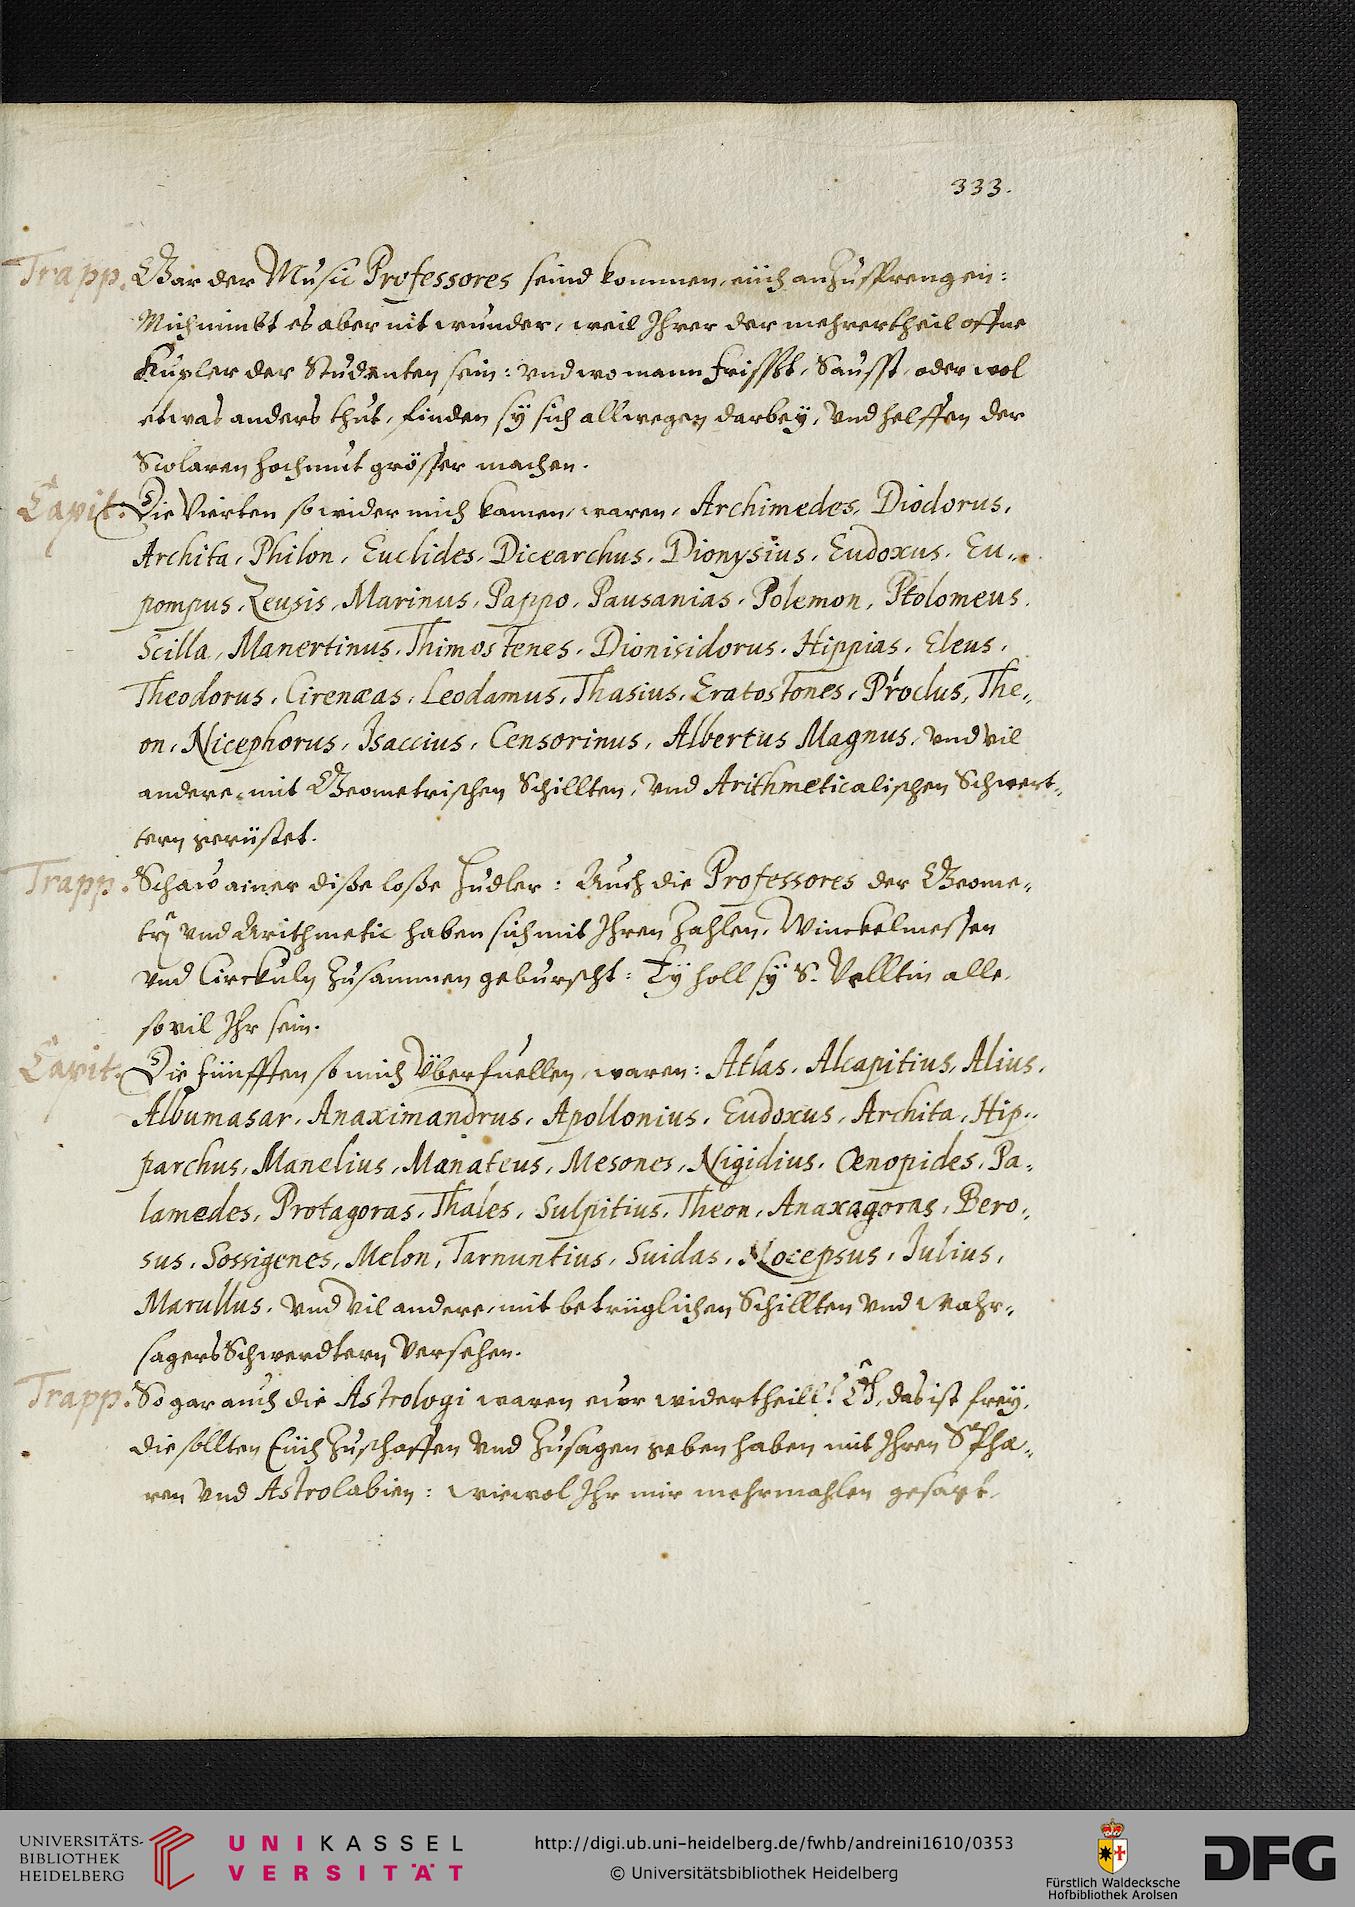 333.
Trapp. Gar der Music Professores seind kommen, eüch anzusprengen:
Mich nimbt es aber nit wunder, weil Ihrer der mehrertheil offne
Kupler der Studenten sein: vnd wo mann frisst, Saufft, oder wol
etwas anders thut, finden sÿ sich allwegen darbeÿ, vnd helffen der
Scolaren hochmut grösser machen.
Capit: Die Vierten so wider mich kamen, waren, Archimedes, Diodorus,
Archita, Philon, Euclides, Dicearchus, Dionysius, Eudoxus, Eu-
pompus, Zeusis, Marinus, Pappo, Pausanias, Polemon, Ptolomeus,
Scilla, Manertinus, Thimostenes, Dionisidorus, Hippias, Eleus,
Theodorus, Cirenæas, Leodamus, Thasius, Eratostones, Proclus, The-
on, Nicephorus, Isaccius, Censorinus, Albertus Magnus, vnd vil
andere, mit Geometrischen Schillten, vnd Arithmeticalischen Schwert-
tern gerüstet.
Trapp. Schaw ainer diße loße Hudler: Auch die Professores der Geome-
trÿ vnd Arithmetic haben sich mit Ihren Zahlen, Winckelmessen
vnd Circkuln zusammen geburscht: Eÿ holl sÿ S. Velltin alle,
so vil Ihr sein.
Capit: Die fünfften so mich Überfuellen, waren: Atlas, Alcapitius, Alius,
Albumasar, Anaximandrus, Apollonius, Eudoxus, Archita, Hip-
parchus, Manelius, Manateus, Mesones, Nigidius, Œnopides, Pa-
lamedes, Protagoras, Thales, Sulpitius, Theon, Anaxagoras, Bero-
sus, Sossigenes, Melon, Tarnuntius, Suidas, Nocepsus, Iulius,
Marullus, vnd vil andere, mit betrüglichen Schillten vnd Wahr-
sagers Schwerdtern Versehen.
Trapp. So gar auch die Astrologi waren eur widertheill! Ôh, das ist freÿ,
die sollten Eüch zuschaffen vnd zusagen geben haben mit Ihren Sphæ-
ren vnd Astrolabien: wiewol Ihr mir mehrmahlen gesagt,
UNIVERSITÄTS-
BIBLIOTHEK
HEIDELBERG
UNIKASSEL
VERSITÄT
http://digi.ub.uni-heidelberg.de/fwhb/andreini1610/0353
© Universitätsbibliothek Heidelberg
Fürstlich Waldecksche
Hofbibliothek Arolsen
DFG